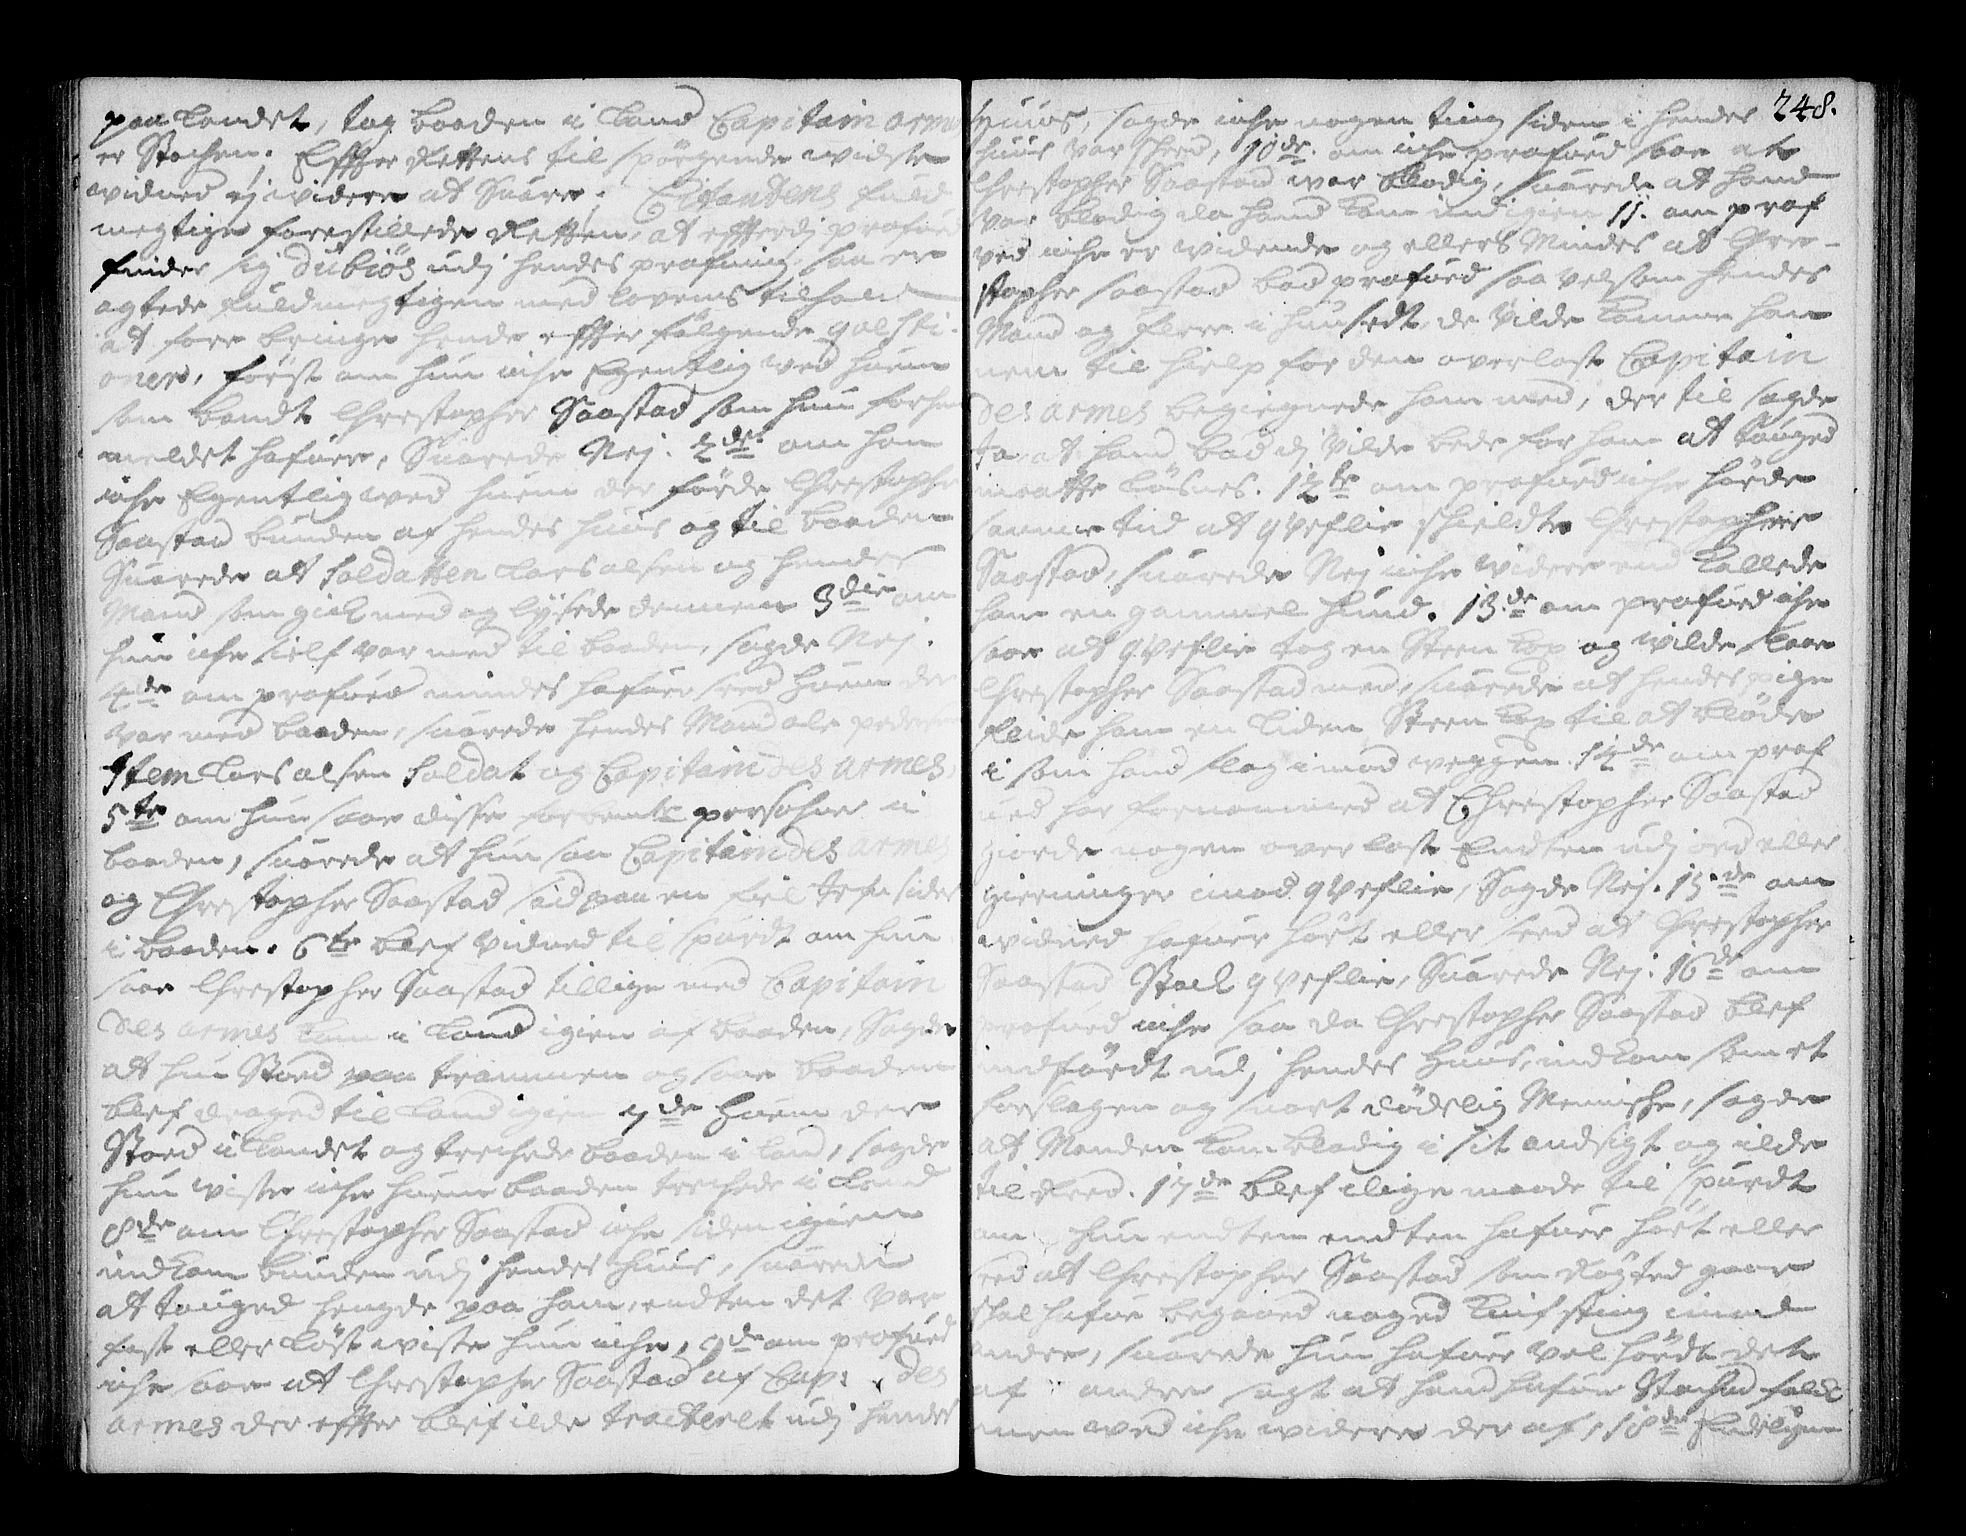 paa Landet, tog baaden i Land Capitain armes
er Stachen. Effter Rettens til spørgende widste
widned ej widere at Suare; Citantens fuld
megtige forestillede Retten, at effterdj profued
finder sig dubiøs udj hendes profning, saa er
agtede fuldmegtigen med lovens tilhold
at fore bringe hende effter følgende qvesti-
oner, først om hun iche Egentlig ved huem
som bandt Chrestopher Saastad som hun forhen
meldet hafuer, Suarede Nej. 2de om hun
iche Egentlig ved huem der førde Chrestopher
Saastad bunden af hendes huus og til baaden
Suarede att Soldatten Lars olsen og hendes
Mand som gick med og lysede dennem 3die om
hun iche sielf var med til baaden, sagde Nej.
4de om profued mindes hafuer seed huem der
var med baaden, suarede hendes Mand ole peders
Item Lars olsen Soldat og Capitain des armes,
5te om hun saae disse for bente persohner i
baaden, suarede att hun saa Capitain des armes
og Chrestopher Saastad sad paa en fiel tofte sides
i baaden. 6te blef vidned til spurdt om hun
saae Chrestopher Saastad tillige med Capitain
des armes kom i Land igien af baaden, Sagde
att hun Stoed paa trammen og saae baaden
blef draged til land igien 7de huem der
Stoed i Landet og trechede baaden i land, sagde
hun viste iche huem baaden trechede i Land
8de om Chrestopher Saastad iche siden igien
indkom bunden udj hendes huus, suarede
att touged hengde paa ham, endten det var
fast eller løst viste hun iche, 9de om profued
iche saae att Chrestopher Saastad af Cap: des
armes der effter blef ilde tracteret udj hendes
248.
huus, sagde iche nogen ting siden i hendes
huus var skeed, 10de. om iche profued saae at
Chrestopher Saastad war blodig, suarede att hand
var blodig da hand kom ind igien 11. om prof
ved iche er widende og ellers Mindes at Chre-
stopher Saastad bad profued saa velsom hendes
Mand og flere i huusedt, de vilde komme han
nem til hielp for den overlast Capitain
des armes begiegnede ham med, der til sagde
Ja att hand bad dj vilde bede for ham at touged
maatte løsnes. 12te om profued iche hørde
samme tid att qveflie skieldte Chrestopher
Saastad, suarede Nej iche widere end kallede
ham en gammel hund. 13de om profued iche
saae att qveflie tog en Steen kop og wilde slaae
Chrestopher Saastad med, suarede att hendes pige
fleide ham en liden Steen kop til att bløde
i som hand slog imod veggen. 14de om prof
ued har fornommed att Chrestopher Saastad
giorde nogen over last Endten udj ord eller
gierninger imod qveflie, Sagde Nej. 15de om
widned hafuer hørt eller seed att Chrestopher
Saastad Stack qveflie, Suarede Nej. 16de om
profued iche saa da Chrestopher Saastad blef
indførdt udj hendes huus, indkom som et
forslagen og snart dødelig Menniche, sagde
att Manden kom blodig i sit andsigt og ilde
til Reed. 17de blef ilige maade til spurdt
om hun endten endten hafuer hørt eller
seed att Chrestopher Saastad som Røgted gaar
skal hafue begaaed noged knif sting imod
andre, suarede hun hafuer vel hørdt det
af andre sagt at hand hafuer Stached folk
men ved iche widere der af, 18de Endelig om